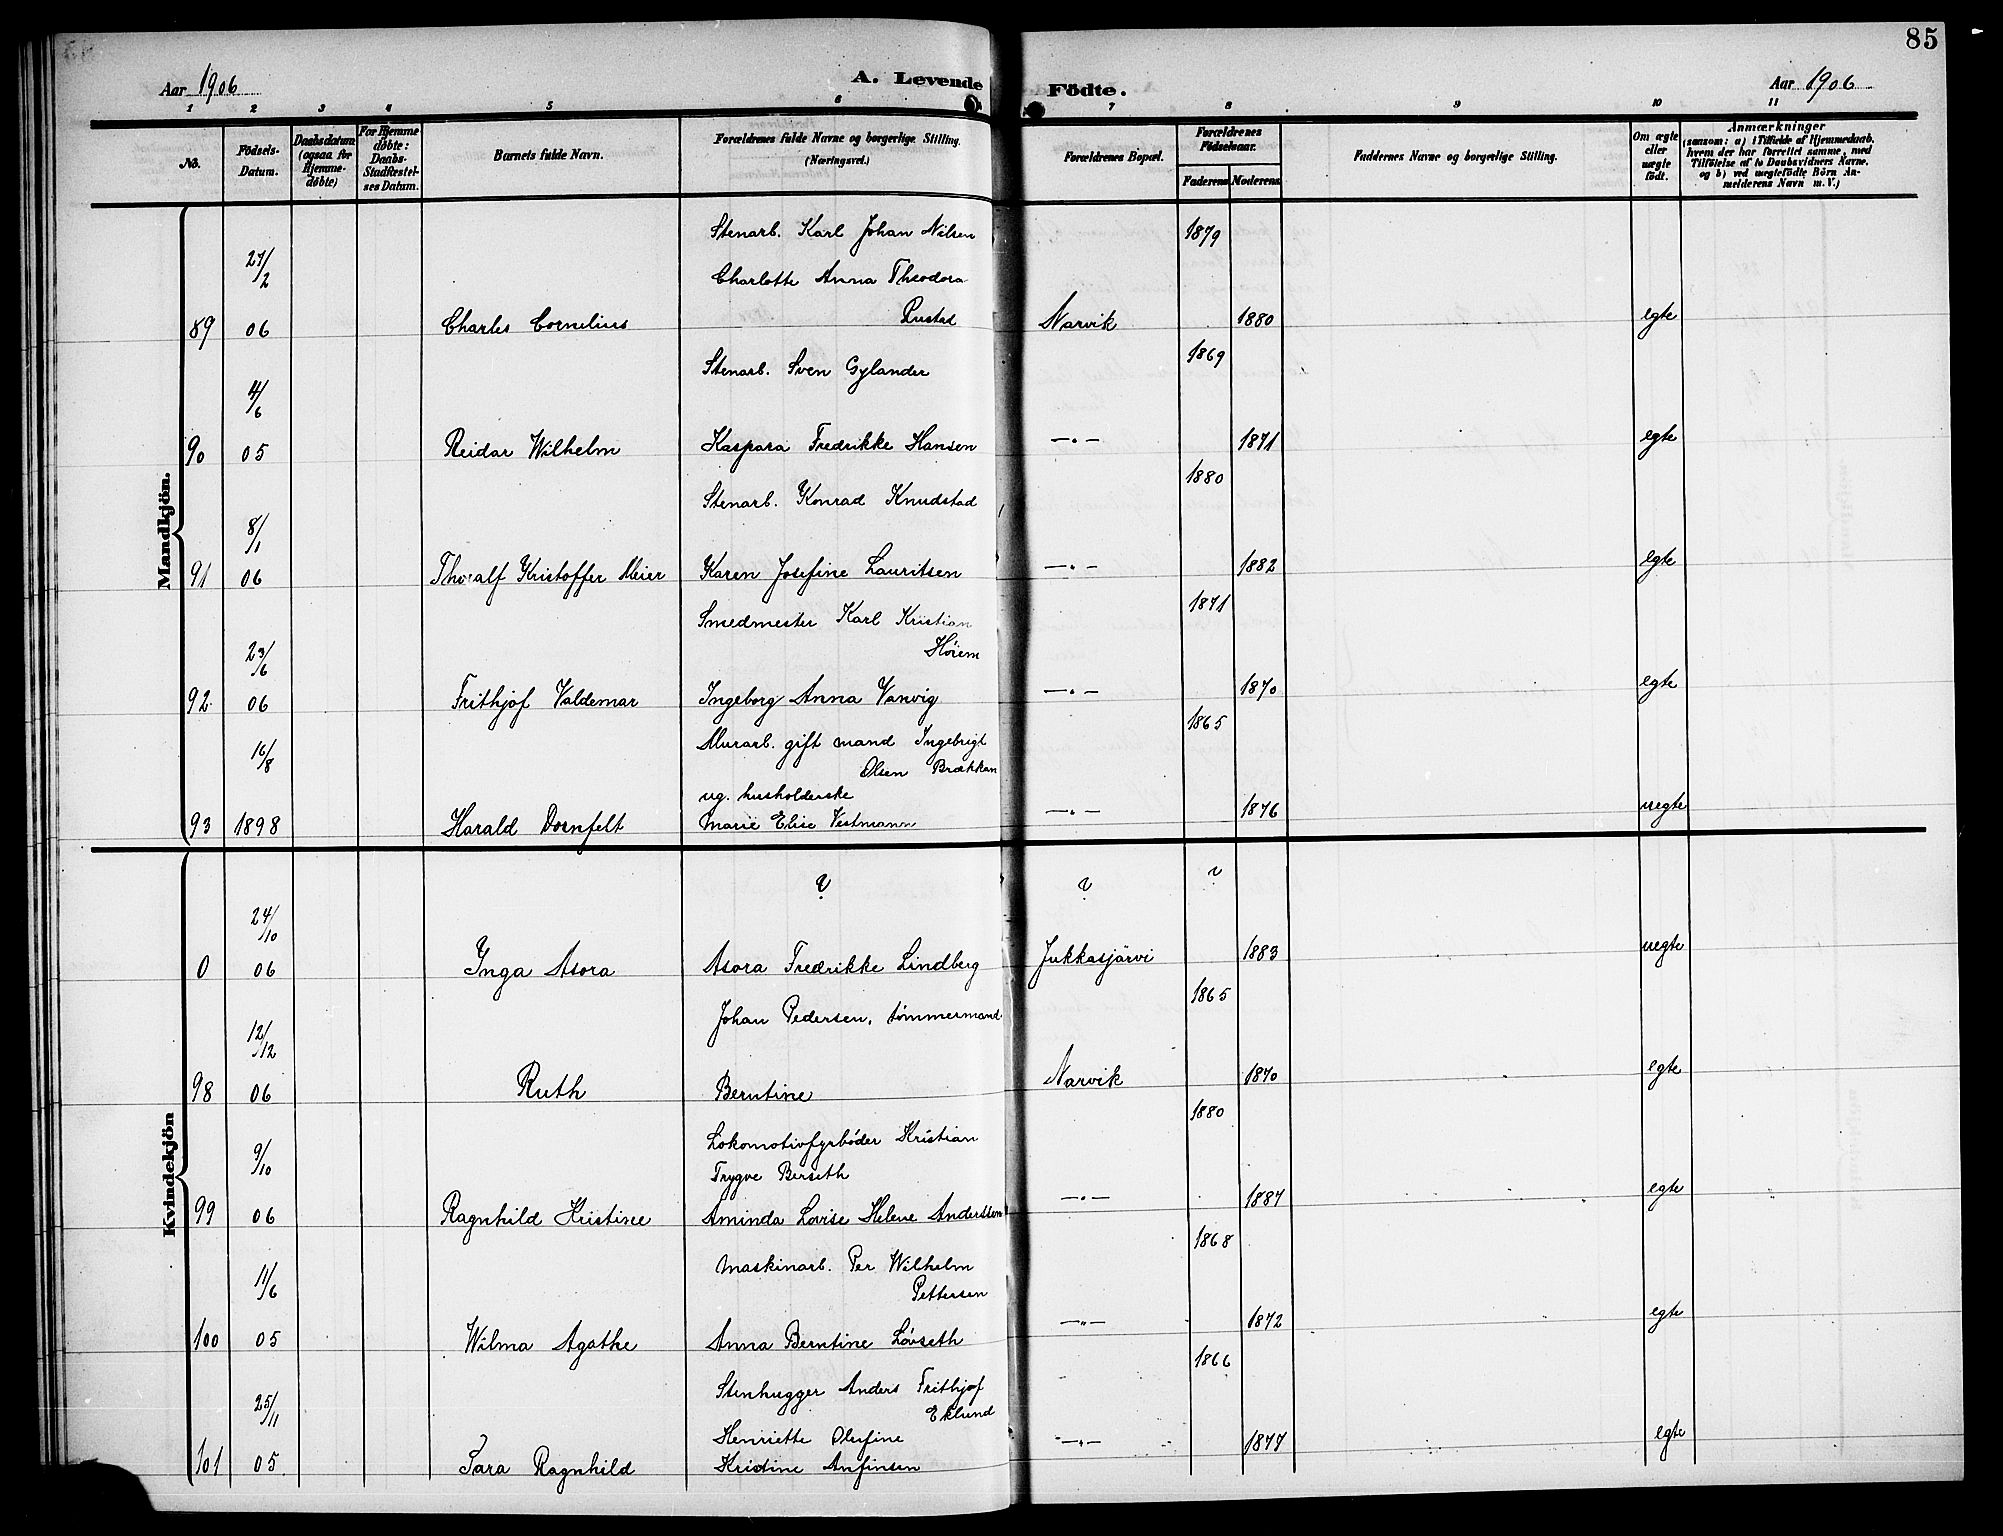 85
Aar 1906
A. Levende
Födte.
Aar 1906
1 2 3 4 5 6 7 8 9 10 11
No.
Födsels-
Datum.
Daabsdatum
(ogsaa for
Hjemme-
döbte)
For Hjemme
döbte:
Daabs-
Stadfæstel-
ses Datum.
Barnets fulde Navn.
Forældrenes fulde Navne og borgerlige Stilling.
(Næringsvei.)
Forældrenes Bopæl.
Forældrenes
Födselsaar.
Faderens
Moderens
Faddernes Navne og borgerlige Stilling.
Om ægte
eller
uægte
födt.
Anmærkninger
(saasom: a) i Tilfælde af Hjemmedaab,
hvem der har forrettet samme, med
Tilföielse af to Daabsvidners Navne,
og b) ved uægtefödte Börn An-
melderens Navn m.V.)
Mandkjön.
Stenarb. Karl Johan Nilsen 1879
27/2
Charlotte Anna Theodora
89 06 Charles Cornelius Rustad Narvik 1880 egte
Stenarb. Sven Gylander 1869
4/6
90 05 Reidar Wilhelm Kaspara Fredrikke Hansen —„— 1871 egte
Stenarb. Konrad Knudstad 1880
8/1
91 06 Thoralf Kristoffer Meier Karen Josefine Lauritsen —„— 1882 egte
Smedmester Karl Kristian 1871
Hörem
23/6
92. 06 Frithjof Valdemar Ingeborg Anna Vanvig —„— 1870 egte
Murarb. gift mand Ingebrigt 1865
16/8
Olsen Brækkan
ug. husholderske
93 1898 Harald Dornfelt Marie Elise Vestmann —„— 1876 uegte
Kvindekjön
? ? ?
24/10
0 06 Inga Asora Asora Fredrikke Lindberg Jukkasjärvi 1883 uegte
Johan Pedersen, tømmermand 1865
12/12
98 06 Ruth Berntine Narvik 1870 egte
Lokomotivfyrbøder Kristian 1880
9/10
Trygve Berseth
99 06 Ragnhild Kristine Aminda Lovise Helene Anderssen —„— 1887 egte
Maskinarb. Per Wilhelm 1868
11/6
Pettersen
100 05 Wilma Agathe Anna Berntine Løvseth —„— 1872 egte
Stenhugger Anders Frithjof 1866
25/11
Eklund
Henriette Olufine
101 05 Sara Ragnhild Kristine Anfinsen —„— 1877 egte